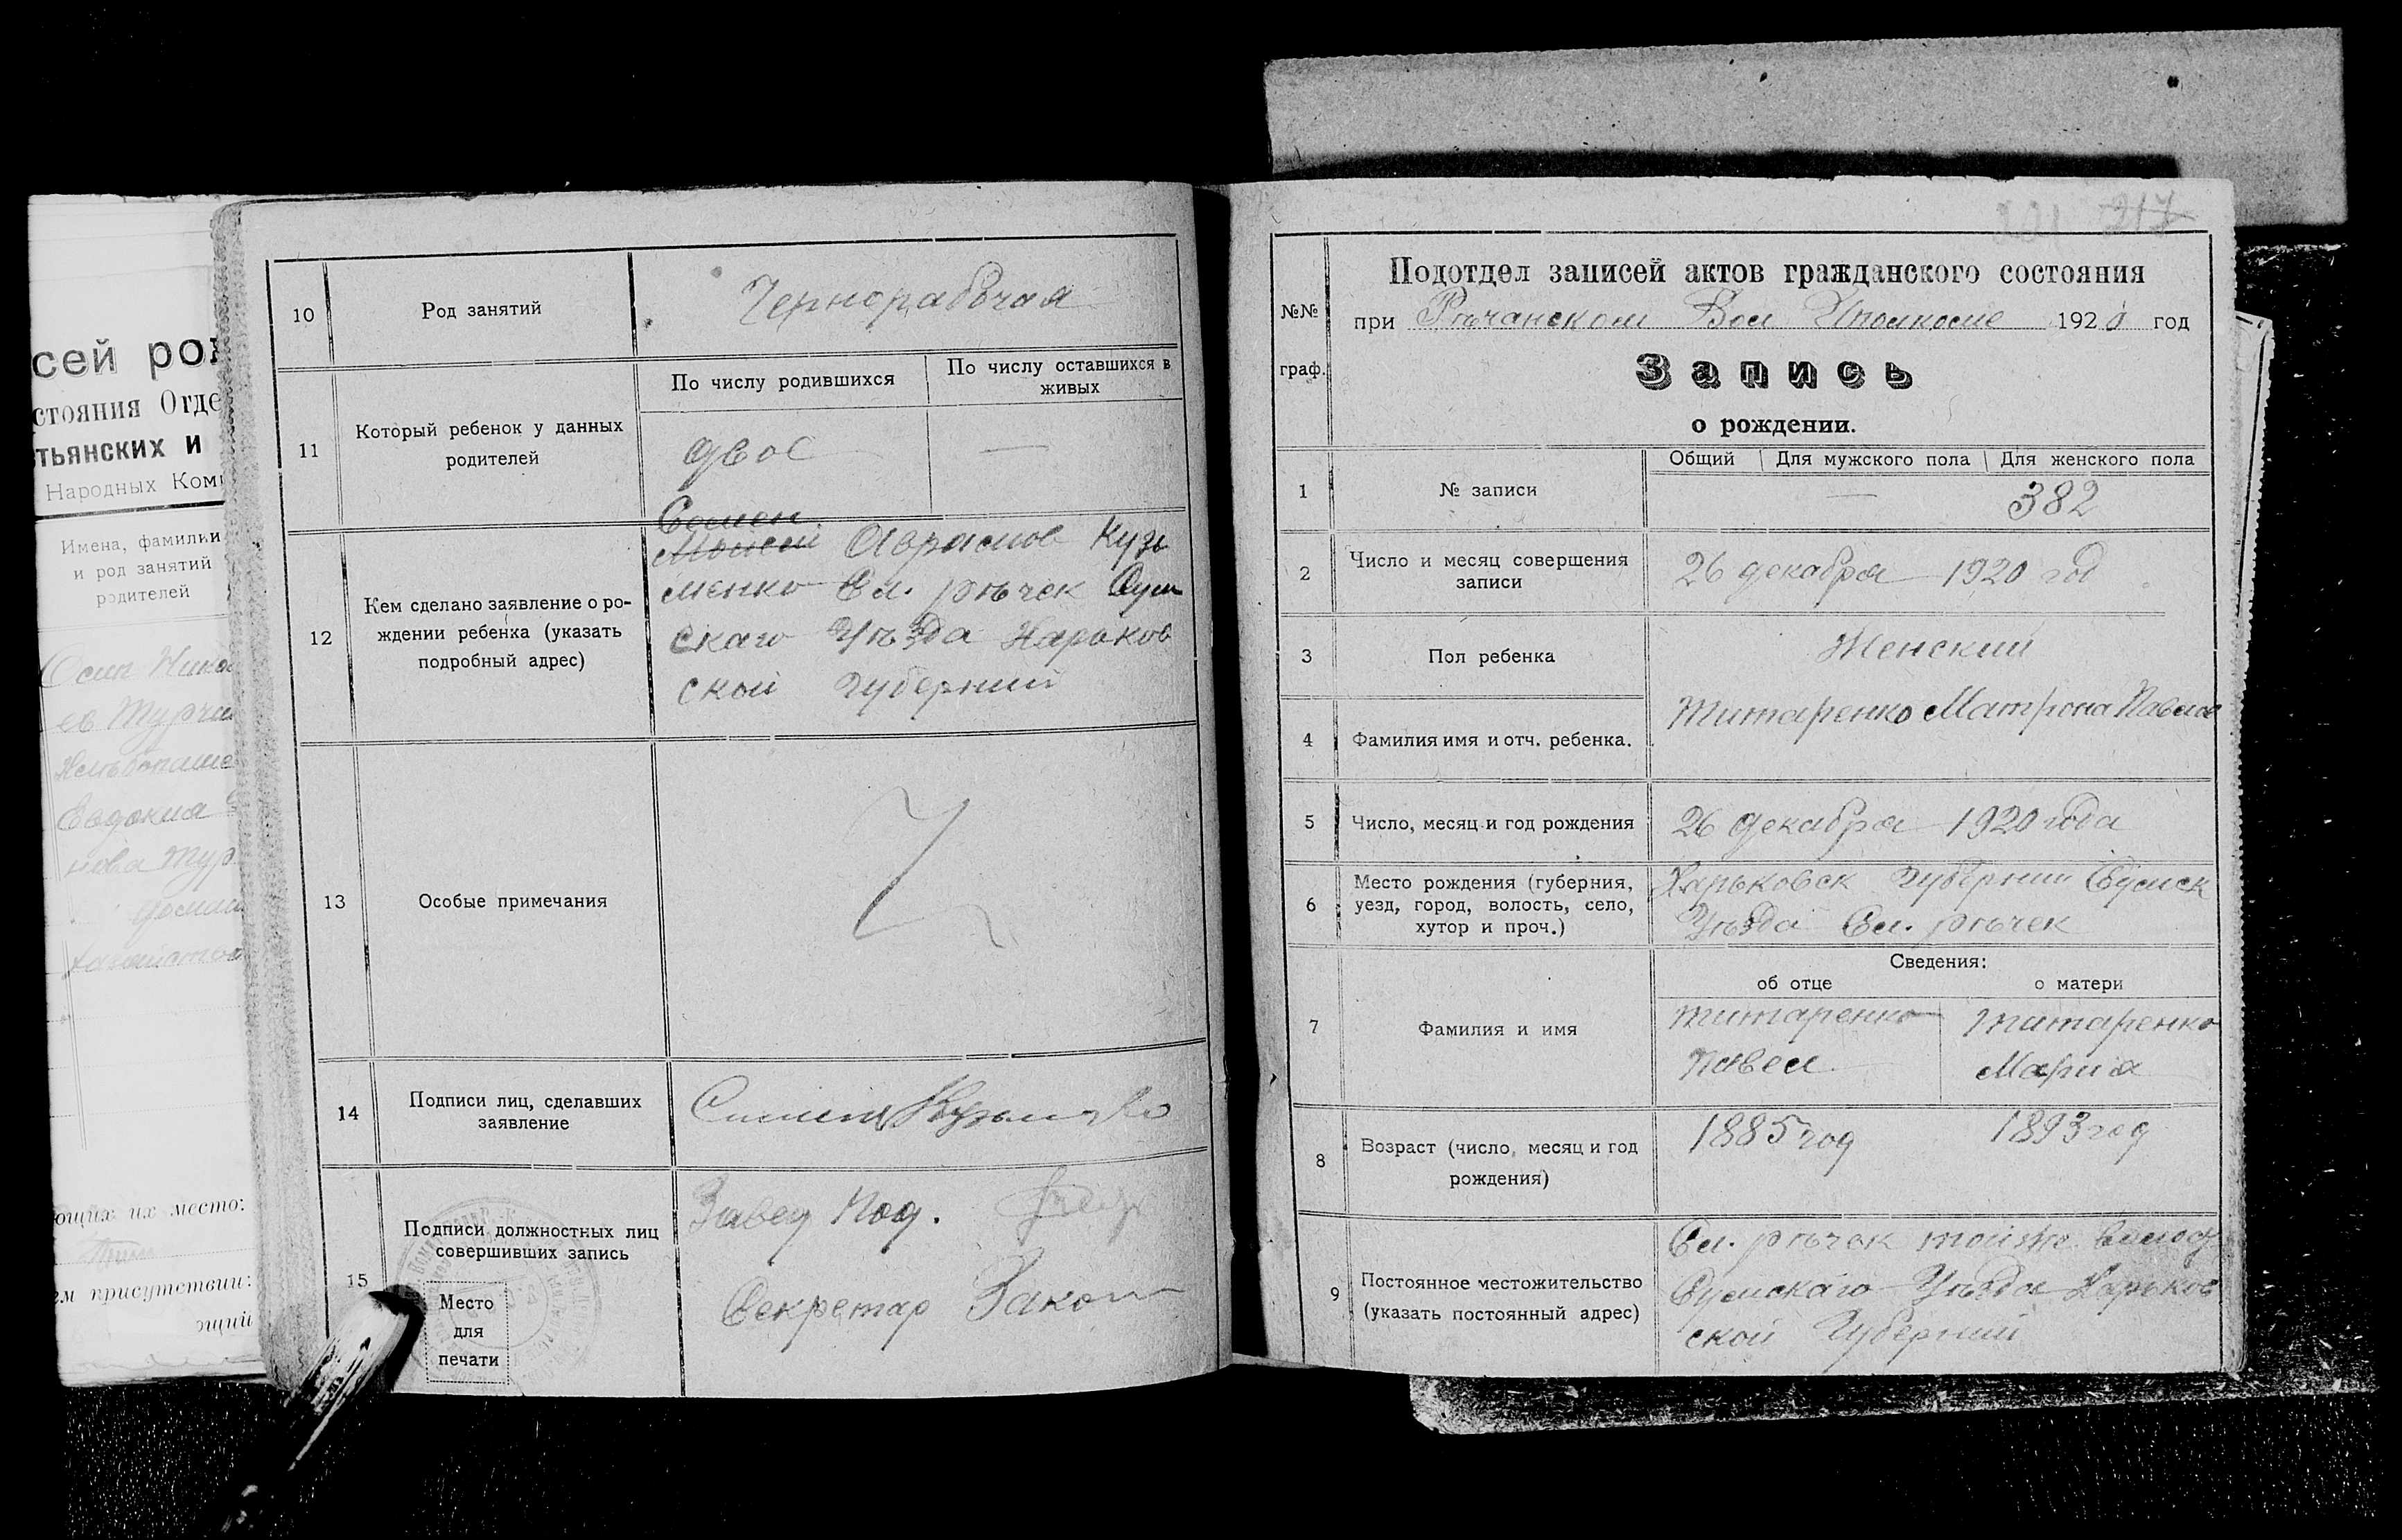 сей рож
стояния Отде
тьянских и
Народных Коми
Имена, фамилии
и род занятий
родителей
Осип Никол
ев Турчи
Хлебопаше
Евдокия
нова Тур
хазяйство
ющих их место:
ем присутствии:
ющий
10
Род занятий
Чернорабочая
11
Который ребенок у данных
родителей
По числу родившихся
По числу оставшихся в
живых
двое
—
12
Кем сделано заявление о ро-
ждении ребенка (указать
подробный адрес)
Семен
Моисей Аврамов Кузь
менко Сл. рѣчек Сум
скаго Уѣзда Харьков
ской Губернии
13
Особые примечания
14
Подписи лиц, сделавших
заявление
Симен Кузменко
15
Подписи должностных лиц
совершивших запись
Место
для
печати
Завед Под.
Секретар
217
№№
граф.
Подотдел записей актов гражданского состояния
при Рѣчанском Вол Исполкоме 1920 год
Запись
о рождении.
1
№ записи
Общий
Для мужского пола
Для женского пола
—
382
2
Число и месяц совершения
записи
26 декабря 1920 год
3
Пол ребенка
Женский
4
Фамилия имя и отч. ребенка.
Титаренко Матрона Павлов
5
Число, месяц и год рождения
26 декабря 1920 года
6
Место рождения (губерния,
уезд, город, волость, село,
хутор и проч.)
Харьковск Губернии Сумск
Уѣзда Сл. рѣчек
7
Фамилия и имя
Сведения:
об отце
о матери
Титаренко
Павел
Титаренко
Мария
8
Возраст (число, месяц и год
рождения)
1885 год
1893 год
9
Постоянное местожительство
(указать постоянный адрес)
Сл. рѣчек тойже волост
Сумскаго Уѣзда Харьков
ской Губернии